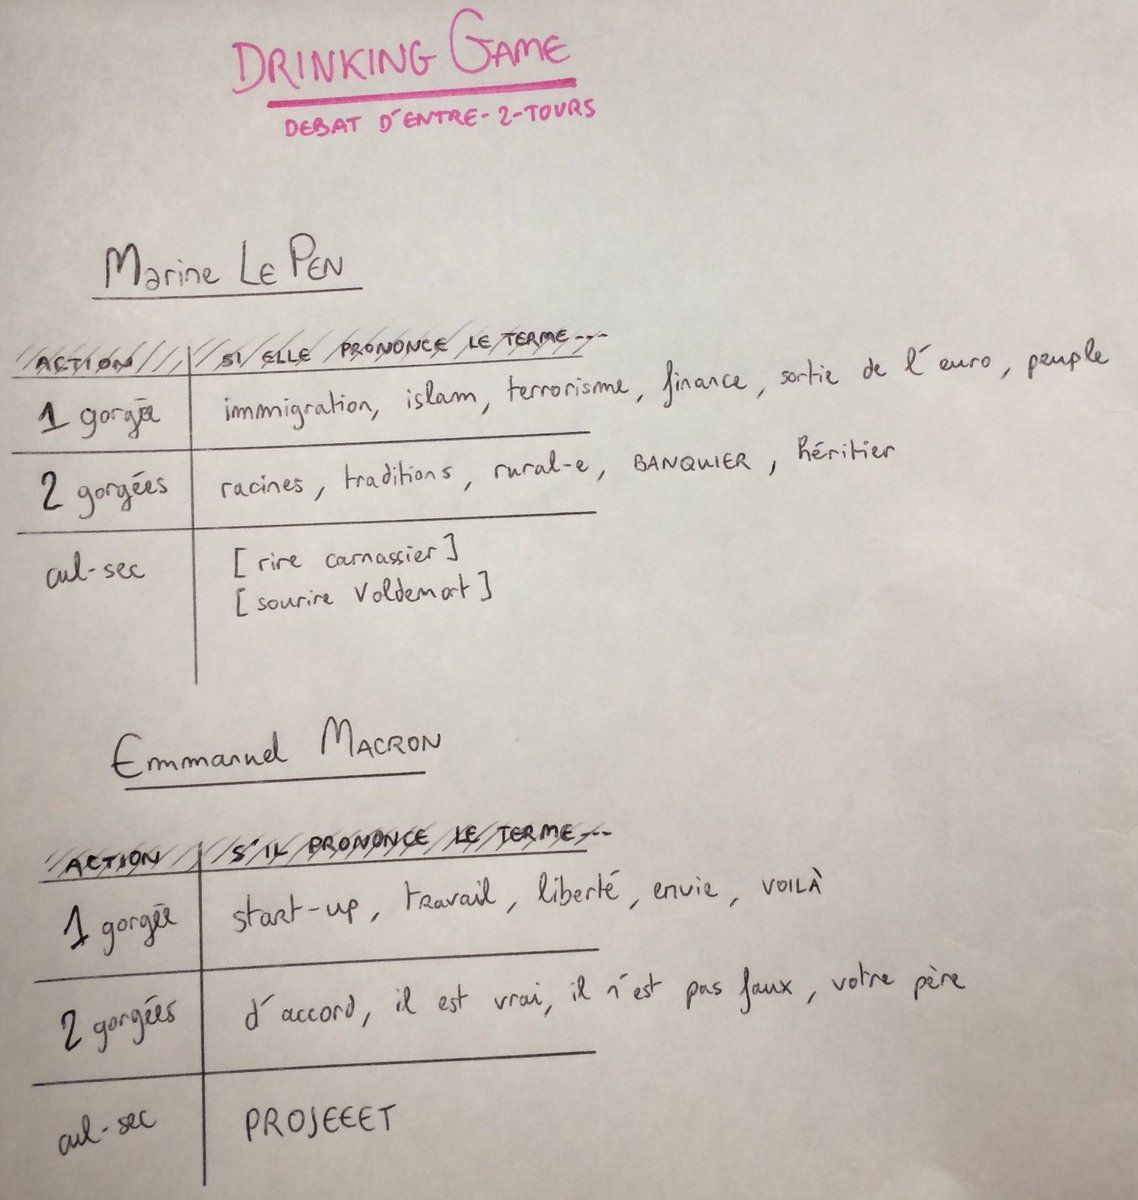 DRINKING GAME
DEBAT D'ENTRE-2-TOURS
Marine LE PEN
ACTION SI ELLE PRONONCE LE TERME...
1 gorgée immigration, islam, terrorisme, finance, sortie de l'euro, peuple
2 gorgées racines, traditions, rural-e, BANQUIER, héritier
cul-sec [rire carnassier]
[sourire Voldemort]
Emmanuel MACRON
ACTION S'IL PRONONCE LE TERME...
1 gorgée start-up, travail, liberté, envie, VOILÀ
2 gorgées d'accord, il est vrai, il n'est pas faux, votre père
cul-sec PROJEEET